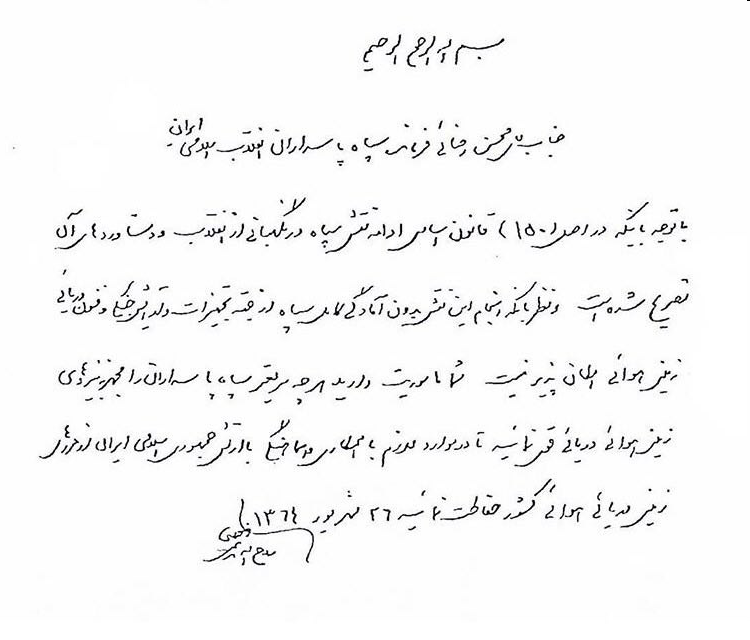 بسم الله الرحمن الرحیم
جناب آقای محسن رضائی فرمانده سپاه پاسداران انقلاب اسلامی ایران
با توجه باینکه در اصل (۱۵۰) قانون اساسی ادامه نقش سپاه در نگهبانی از انقلاب و دستاوردهای آن
تصریح شده است و نظر باینکه انجام این نقش بدون آمادگی کامل سپاه از جهت تجهیزات و تدابیر جنگی و فنون دریائی
زمینی هوائی امکان پذیر نیست شما ماموریت دارید هر چه سریعتر سپاه پاسداران را مجهز به نیروهای
زمینی هوائی دریائی قوی نمائید تا در موارد لازم با همکاری و هماهنگی با ارتش جمهوری اسلامی ایران از مرزهای
زمینی دریائی هوائی کشور حفاظت نمائید ۲۶ شهریور ۱۳۶۴
روح الله الموسوی الخمینی